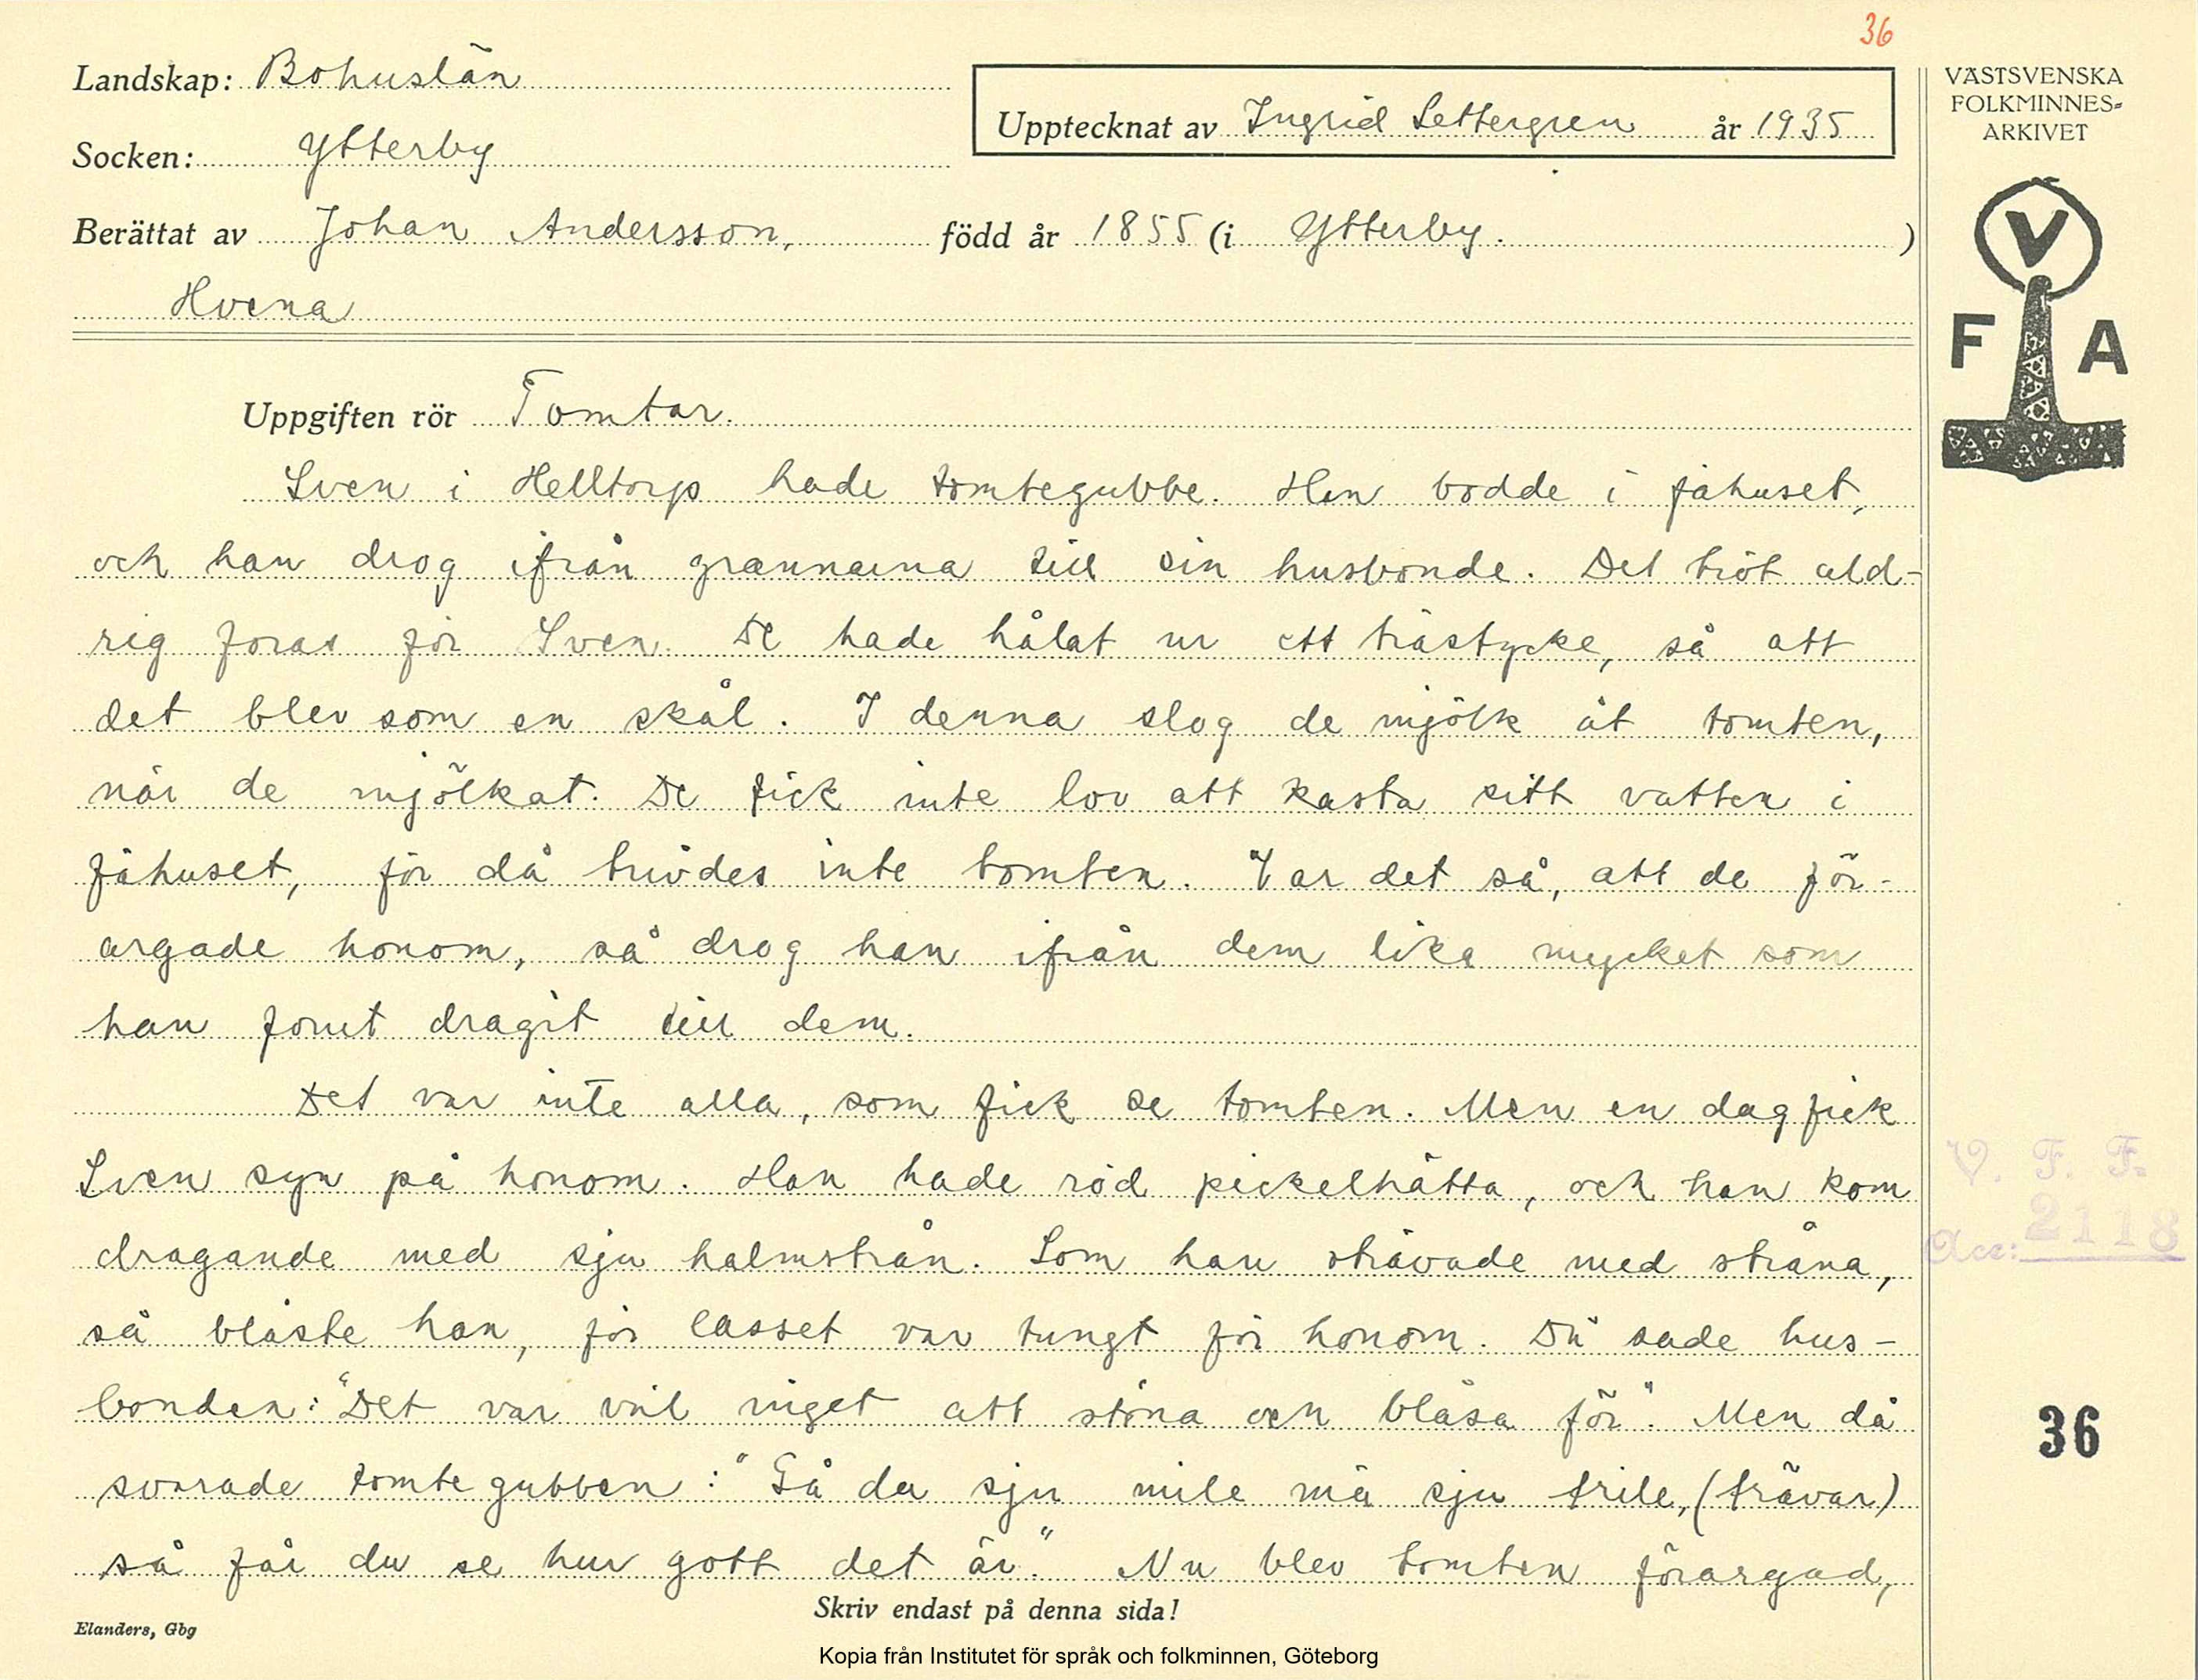 36
Landskap: Bohuslän
Socken: Ytterby
Upptecknat av Ingrid Settergren år 1935
Berättat av Johan Andersson, född år 1855 (i Ytterby. )
Hvena
VÄSTSVENSKA
FOLKMINNES-
ARKIVET
V
F A
Uppgiften rör Tomtar.
Sven i Helltorp hade tomtegubbe. Han bodde i fähuset,
och han drog ifrån grannarna till sin husbonde. Det tröt ald-
rig foras för Sven. De hade hålat ur ett trästycke, så att
det blev som en skål. I denna slog de mjölk åt tomten,
när de mjölkat. De fick inte lov att kasta sitt vatten i
fähuset, för då trivdes inte tomten. Var det så, att de för-
argade honom, så drog han ifrån dem lika mycket som
han förut dragit till dem.
Det var inte alla, som fick se tomten. Men en dag fick
Sven syn på honom. Han hade röd pickelhätta, och han kom
dragande med sju halmstrån. Som han strävade med stråna,
så blåste han, för lasset var tungt för honom. Då sade hus-
bonden: "Det var väl inget att stöna och blåsa för". Men då
svarade tomtegubben: "Gå du sju mile mä sju trile, (trävar)
så får du se hur gott det är." Nu blev tomten förargad,
V. F. F.
Acc: 2118
36
Skriv endast på denna sida!
Elanders, Gbg
Kopia från Institutet för språk och folkminnen, Göteborg